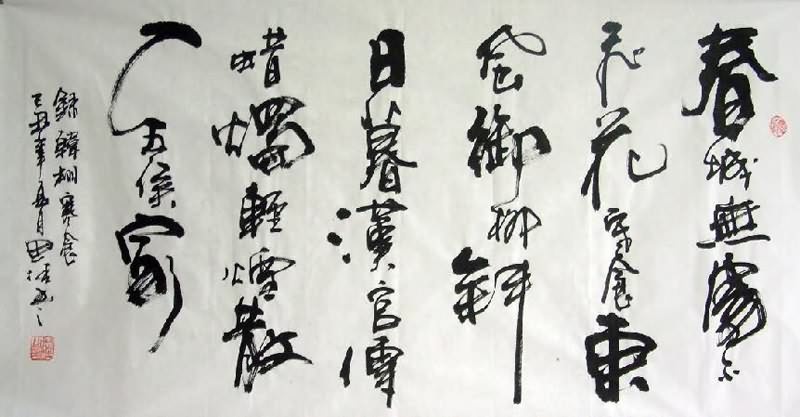 春城無處不
飛花寒食東
風御柳斜
日暮漢宮傳
蜡燭輕煙散
入五侯家
錄韓翃寒食
己丑年